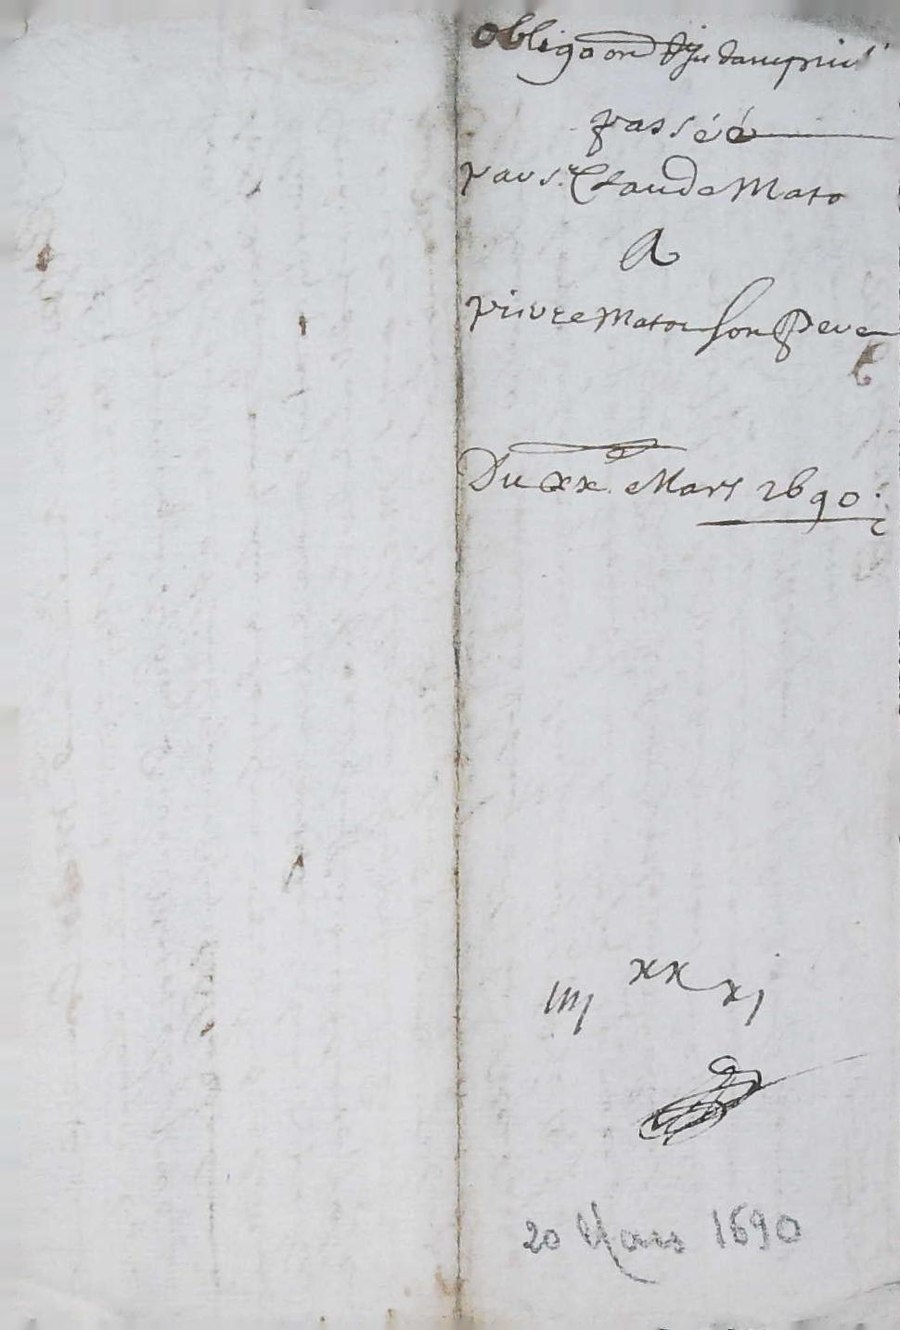 obligaon d'jndampnité
passéé
par sr. Claude Mato
A
pierre Mato son pere
Du xx. Mars 1690.
iiij xx xj
20 Mars 1690